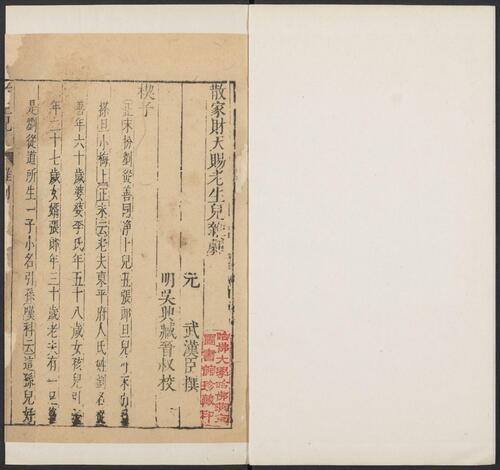 散家財天賜老生兒雜劇
元 武漢臣撰
明吳興臧晉叔校
楔子
正末扮劉從善同淨卜兒丑張郎旦兒
搽旦小梅上正末云老夫東平府人氏姓劉名從
善年六十歲婆婆李氏年五十八歲女孩兒引
年二十七歲女婿張郎年三十歲老夫有一
是劉從道所生一子小名引孫嘆科云這孫兒好
生兒
哈佛大學哈佛燕京
圖書館珍藏印